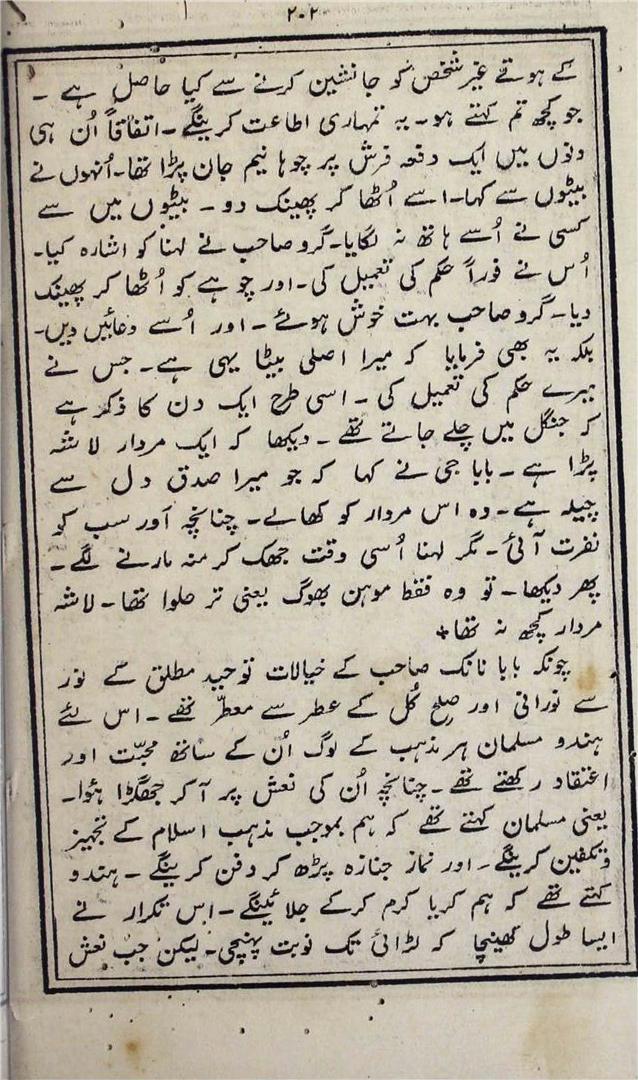 ۲۰۲
کے ہوتے غیر شخص کو جانشین کرنے سے کیا حاصل ہے ۔
جو کچھ تم کہتے ہو۔ یہ تمہاری اطاعت کرینگے۔ اتفاقاً اُن ہی
دنوں میں ایک دفعہ فرش پر چوہا نیم جان پڑا تھا۔ اُنہوں نے
بیٹوں سے کہا۔ اسے اُٹھا کر پھینک دو ۔ بیٹوں میں سے
کسی نے اُسے ہاتھ نہ لگایا۔ گرو صاحب نے لہنا کو اشارہ کیا۔
اُس نے فوراً حکم کی تعمیل کی۔ اور چوہے کو اُٹھا کر پھینک
دیا۔ گرو صاحب بہت خوش ہوئے ۔ اور اُسے دعائیں دیں۔
بلکہ یہ بھی فرمایا کہ میرا اصلی بیٹا یہی ہے۔ جس نے
میرے حکم کی تعمیل کی ۔ اسی طرح ایک دن کا ذکر ہے
کہ جنگل میں چلے جاتے تھے ۔ دیکھا کہ ایک مردار لاشہ
پڑا ہے ۔ بابا جی نے کہا کہ جو میرا صدق دل سے
چیلہ ہے۔ وہ اس مردار کو کھالے۔ چنانچہ اَور سب کو
نفرت آئی ۔ مگر لہنا اُسی وقت جھک کر منہ مارنے لگے۔
پھر دیکھا ۔ تو وہ فقط موہن بھوگ یعنی تر حلوا تھا۔ لاشہ
مردار کچھ نہ تھا٭
چونکہ بابا نانک صاحب کے خیالات توحید مطلق کے نور
سے نورانی اور صلح کُل کے عطر سے معطّر تھے ۔ اس لئے
ہندو مسلمان ہر مذہب کے لوگ اُن کے ساتھ محبّت اور
اعتقاد رکھتے تھے ۔ چنانچہ اُن کی نعش پر آ کر جھگڑا ہؤا۔
یعنی مسلمان کہتے تھے کہ ہم بموجب مذہب اسلام کے تجہیز
و تکفین کرینگے۔ اور نماز جنازہ پڑھ کر دفن کرینگے ۔ ہندو
کہتے تھے کہ ہم کریا کرم کرکے جلائینگے ۔ اس تکرار نے
ایسا طول کھینچا کہ لڑائی تک نوبت پہنچی۔ لیکن جب نعش